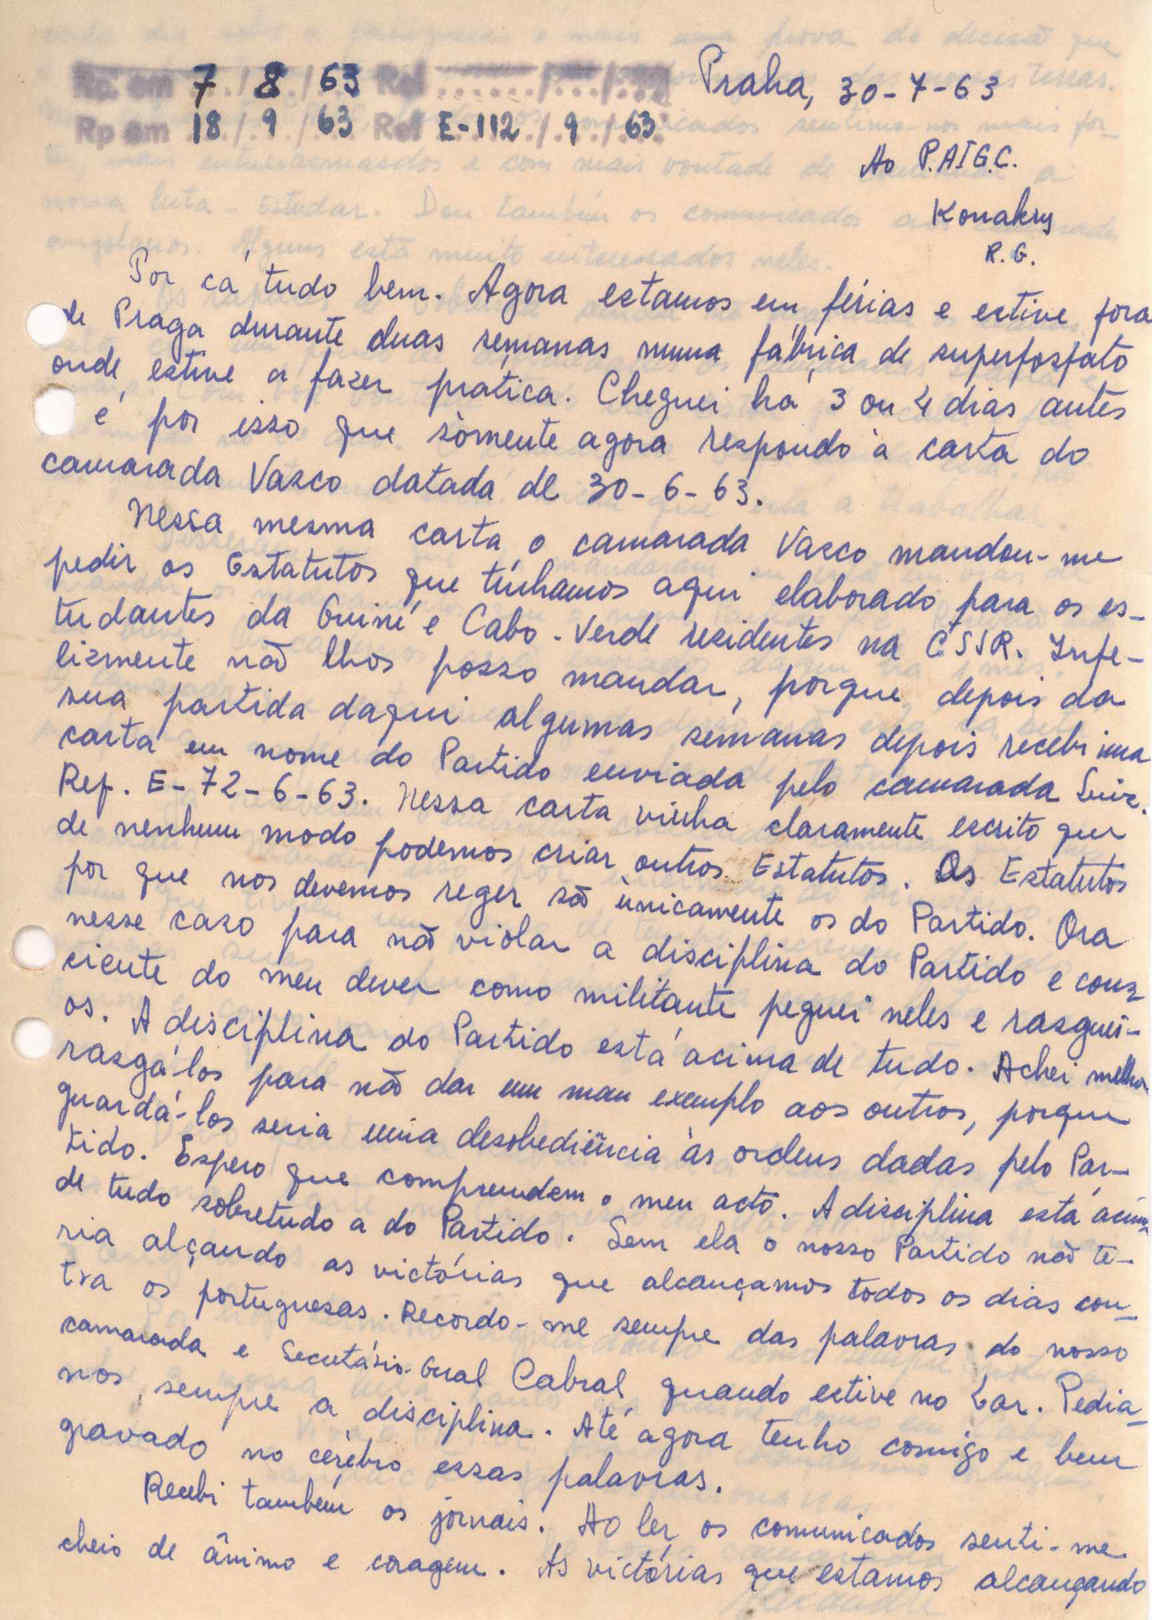 Rp. em 7./8./63 Ref ....../.../...
Rp em 18./.9./63 Ref E-112./.9./.63.
Praha, 30-7-63
Ao P.AI.G.C.
Konakry
R.G.
Por cá tudo bem. Agora estamos em férias e estive fora
de Praga durante duas semanas numa fábrica de superfosfato
onde estive a fazer prática. Cheguei há 3 ou 4 dias antes
e é por isso que sòmente agora respondo à carta do
camarada Vasco datada de 30-6-63.
Nessa mesma carta o camarada Vasco mandou-me
pedir os Estatutos que tínhamos aqui elaborado para os es-
tudantes da Guiné e Cabo-Verde residentes na CSSR. Infe-
lizmente não lhos posso mandar, porque depois da
sua partida daqui algumas semanas depois recebi uma
carta em nome do Partido enviada pelo camarada Luiz.
Ref. E-72-6-63. Nessa carta vinha claramente escrito que
de nenhum modo podemos criar outros Estatutos. Os Estatutos
por que nos devemos reger são ùnicamente os do Partido. Ora
nesse caso para não violar a disciplina do Partido e cons
ciente do meu dever como militante peguei neles e rasguei-
os. A disciplina do Partido está acima de tudo. Achei melhor
rasgá-los para não dar um mau exemplo aos outros, porque
guardá-los seria uma desobediência às ordens dadas pelo Par-
tido. Espero que compreendem o meu acto. A disciplina está acima
de tudo sobretudo a do Partido. Sem ela o nosso Partido não te-
ria alçando as victórias que alcançamos todos os dias con-
tra os portugueses. Recordo-me sempre das palavras do nosso
camarada e Secretário-Geral Cabral quando estive no Lar. Pedia-
nos, sempre a disciplina. Até agora tenho comigo e bem
gravado no cérebro essas palavras.
Recebi também os jornais. Ao ler os comunicados senti-me
cheio de ânimo e coragem. As victórias que estamos alcançando